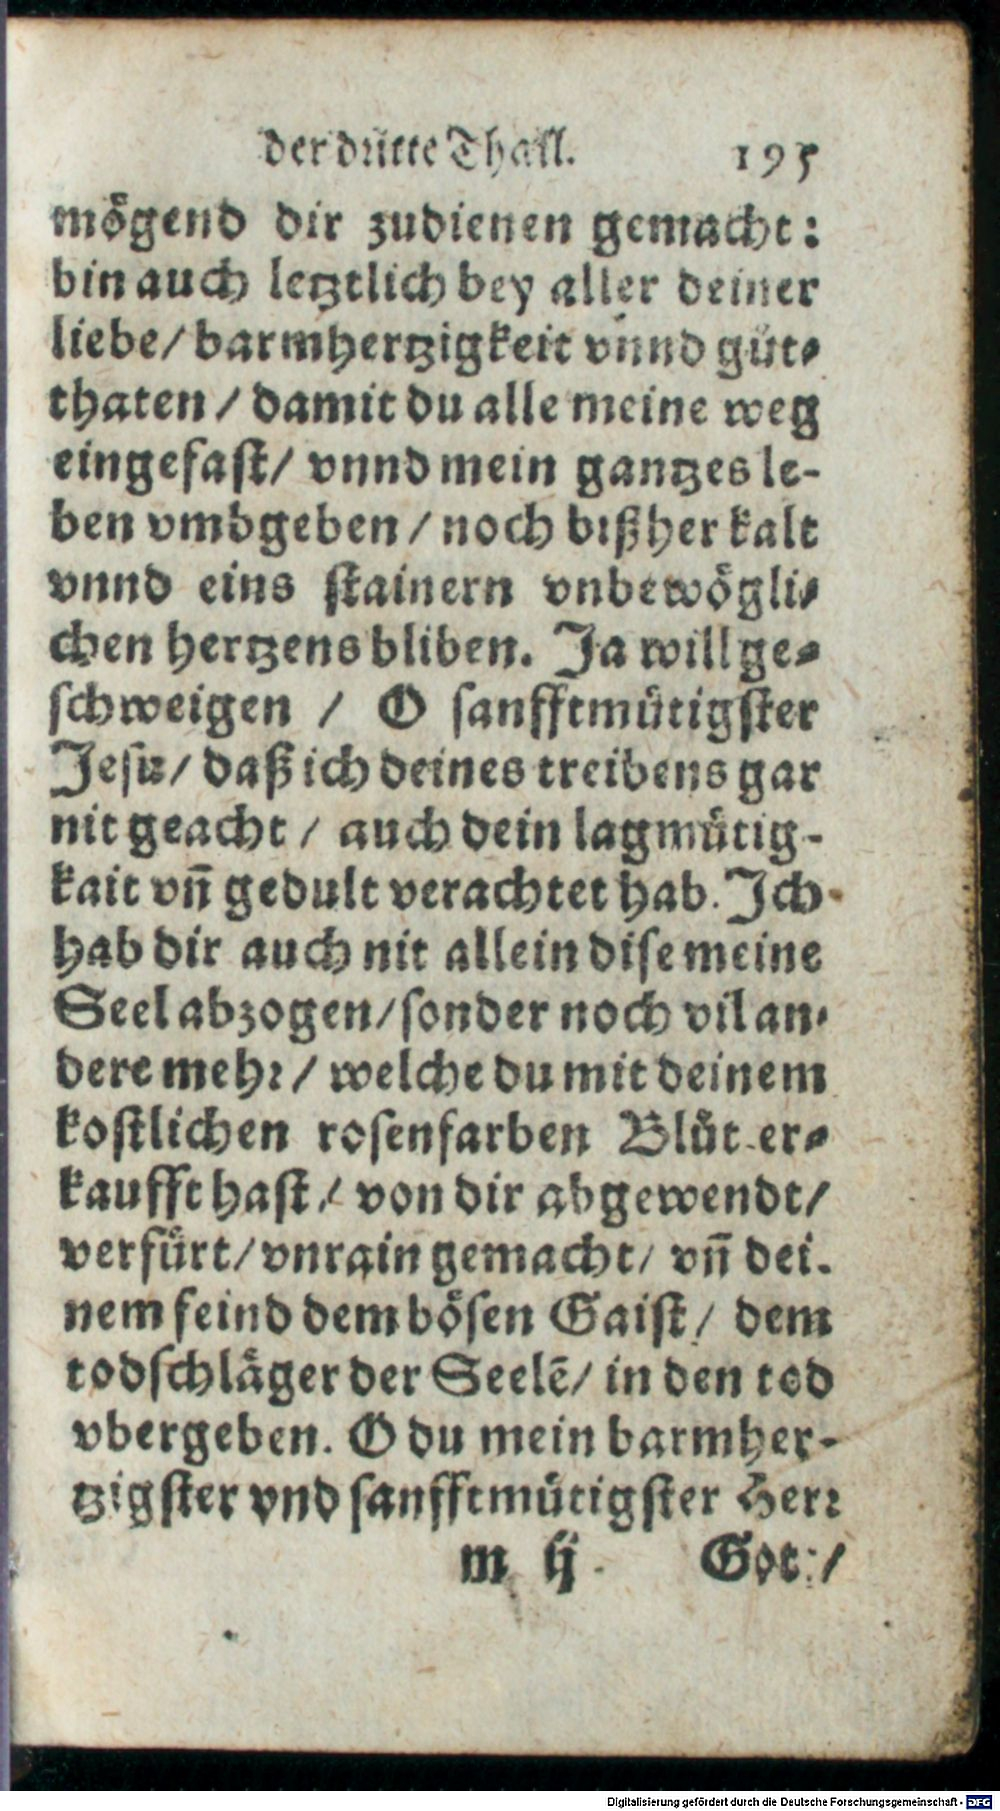 der dritte Thail. 195
mögend dir zudienen gemacht:
bin auch letztlich bey aller deiner
liebe/ barmhertzigkeit vnnd gůt-
thaten / damit du alle meine weg
eingefast/ vnnd mein gantzes le-
ben vmbgeben / noch bißher kalt
vnnd eins stainern vnbewögli-
chen hertzens bliben. Ja will ge-
schweigen / O sanfftmůtigster
Jesu/ daß ich deines treibens gar
nit geacht / auch dein lagmůtig-
kait vñ gedult verachtet hab. Ich
hab dir auch nit allein dise meine
Seel abzogen/ sonder noch vil an-
dere mehr/ welche du mit deinem
kostlichen rosenfarben Blůt er-
kaufft hast/ von dir abgewendt/
verfůrt/ vnrain gemacht/ vñ dei-
nem feind dem bösen Gaist/ dem
todschläger der Seelē/ in den tod
vbergeben. O du mein barmher-
tzigster vnd sanfftmůtigster Herr
m ij Got:/
Digitalisierung gefördert durch die Deutsche Forschungsgemeinschaft - DFG